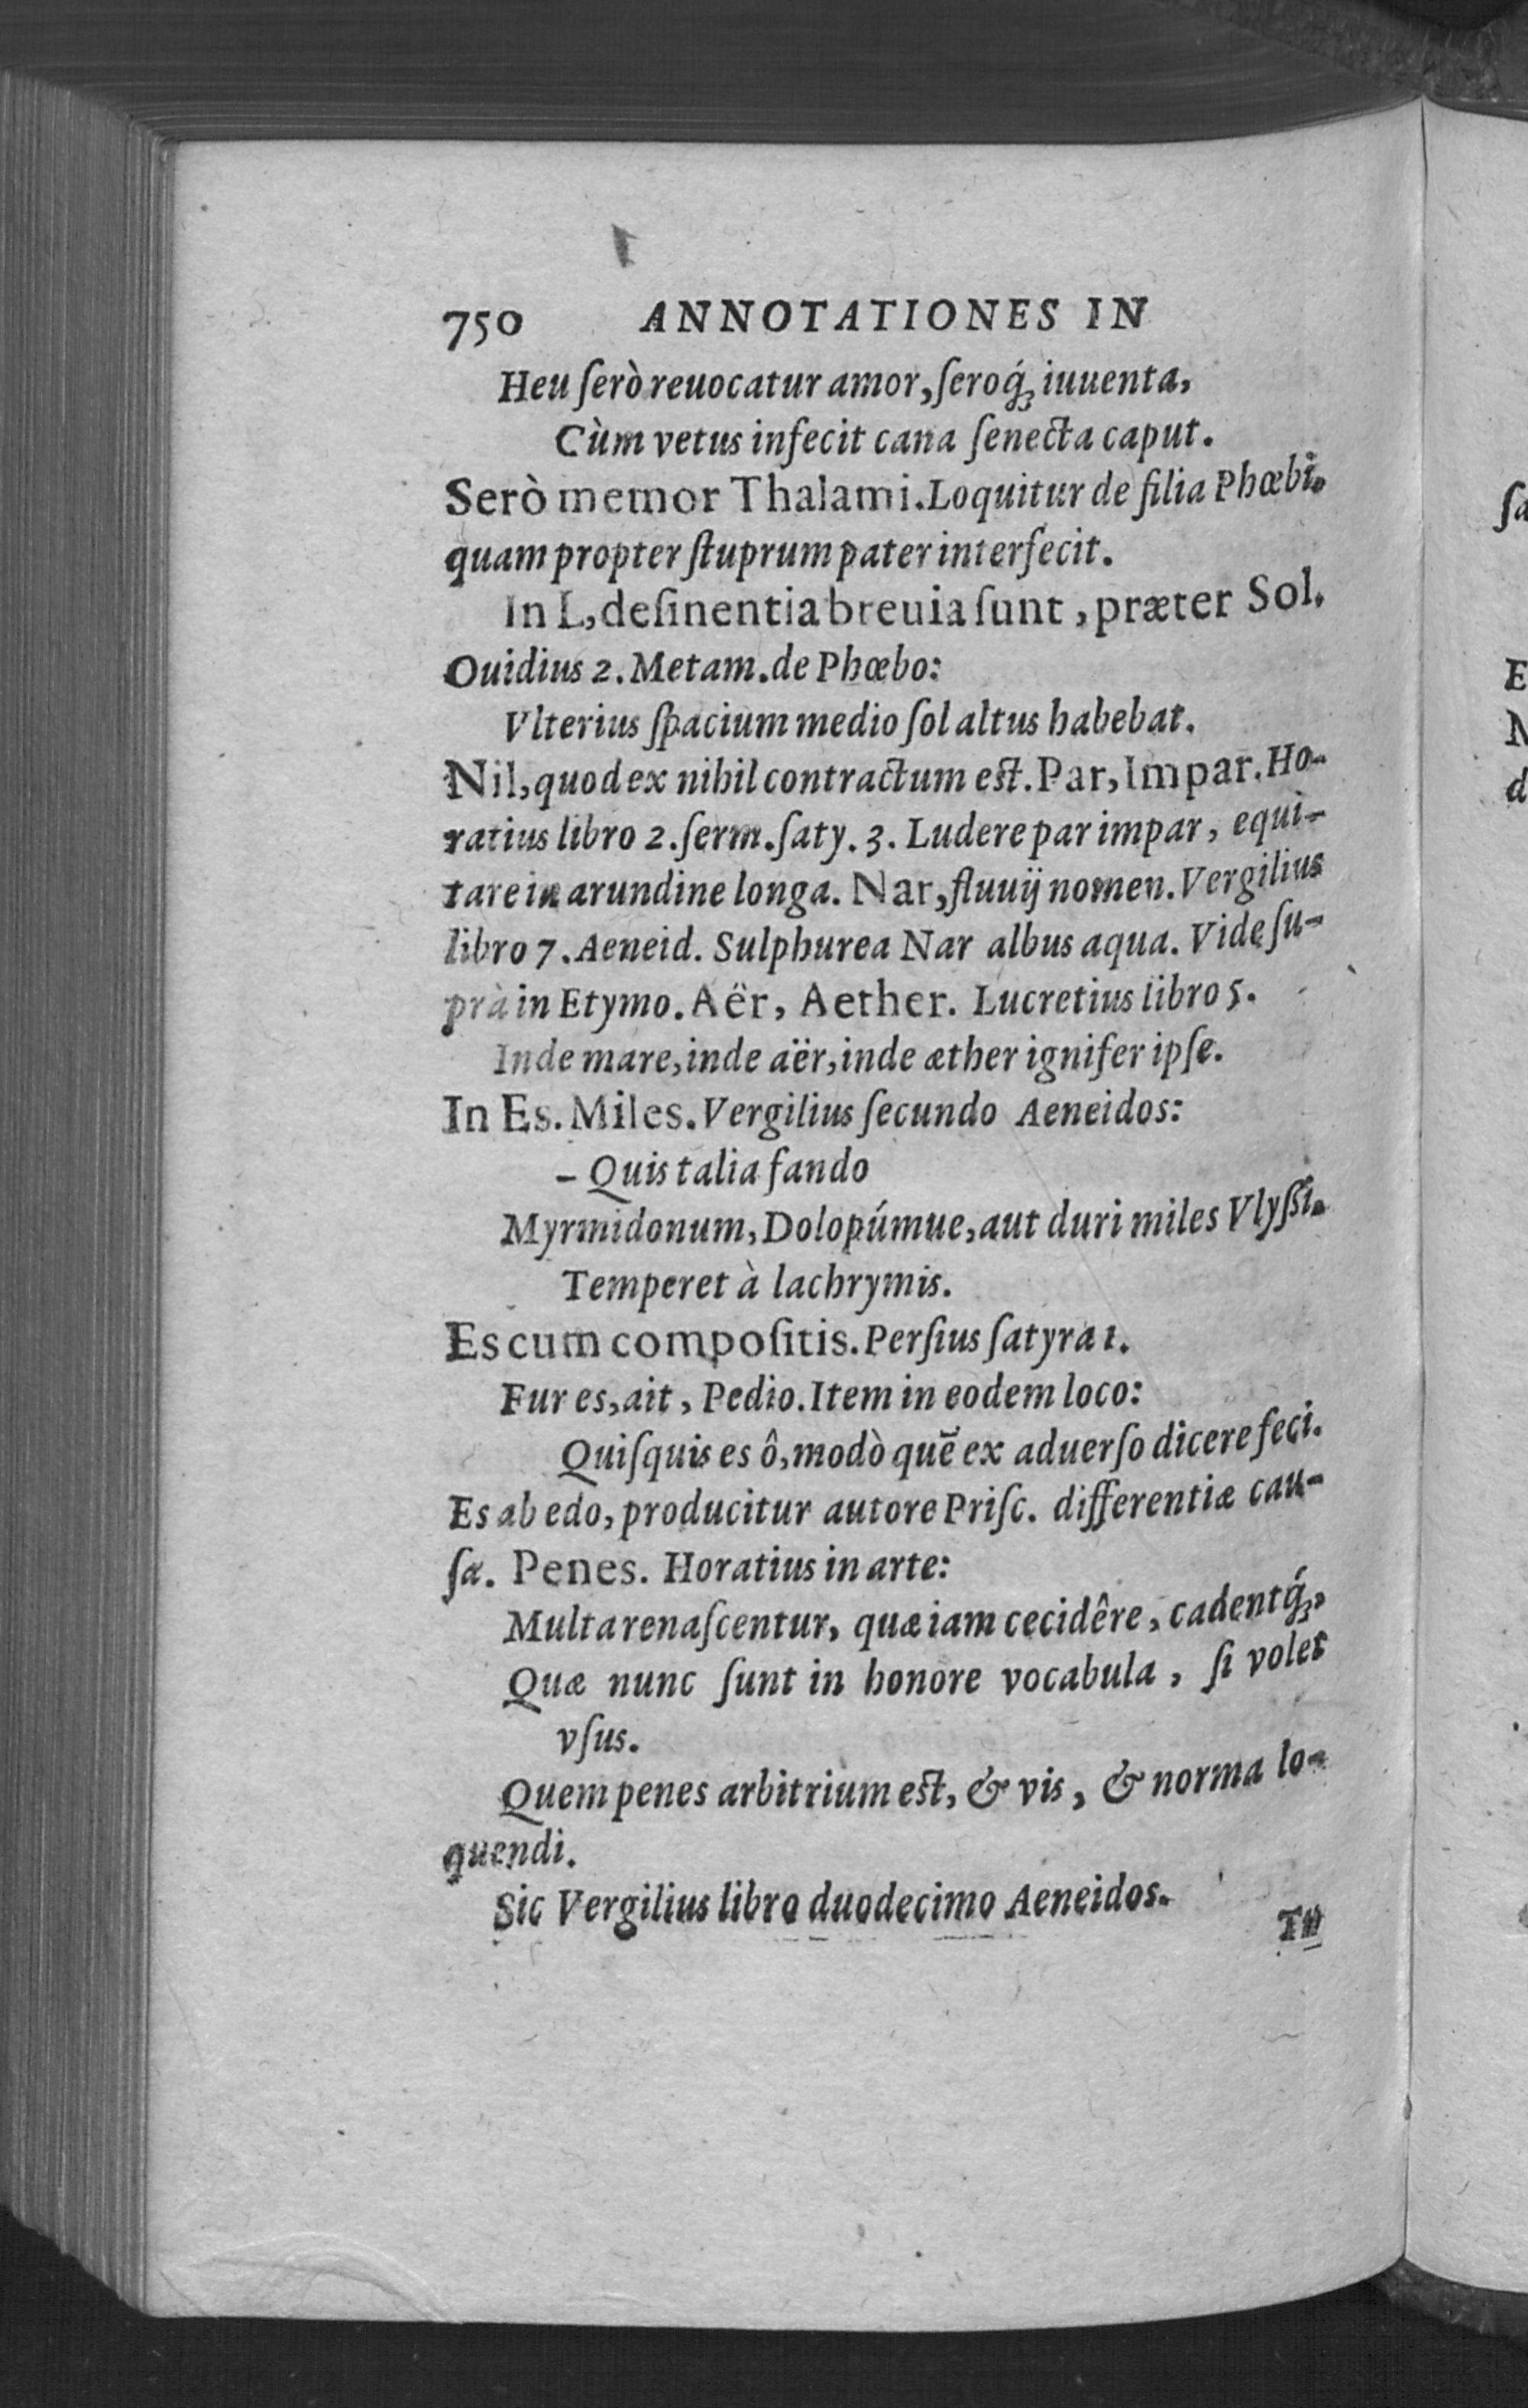 750 ANNOTATIONES IN
Heu ſerò reuocatur amor, ſeroq́ꝫ iuuenta,
Cùm vetus infecit cana ſenecta caput.
Serò memor Thalami. Loquitur de filia Phœbi,
quam propter ſtuprum pater interfecit.
In L, deſinentia breuia ſunt, præter Sol.
Ouidius 2. Metam. de Phœbo:
Vlterius ſpacium medio ſol altus habebat.
Nil, quod ex nihil contractum est. Par, Impar. Ho-
ratius libro 2. ſerm. ſaty. 3. Ludere par impar, equi-
tare in arundine longa. Nar, fluuij nomen. Vergilius
libro 7. Aeneid. Sulphurea Nar albus aqua. Vide ſu-
prà in Etymo. Aër, Aether. Lucretius libro 5.
Inde mare, inde aër, inde æther ignifer ipſe.
In Es. Miles. Vergilius ſecundo Aeneidos:
– Quis talia fando
Myrmidonum, Dolopúmue, aut duri miles Vlyßi.
Temperet à lachrymis.
Es cum compoſitis. Perſius ſatyra 1.
Fur es, ait, Pedio. Item in eodem loco:
Quiſquis es ô, modò quē ex aduerſo dicere feci.
Es ab edo, producitur autore Priſc. differentiæ cau-
ſa. Penes. Horatius in arte:
Multa renaſcentur, quæ iam cecidêre, cadentq́ꝫ,
Quæ nunc ſunt in honore vocabula, ſi volet
vſus.
Quem penes arbitrium est, & vis, & norma lo-
quendi.
Sic Vergilius libro duodecimo Aeneidos.
Tu
ſa
E
N
d